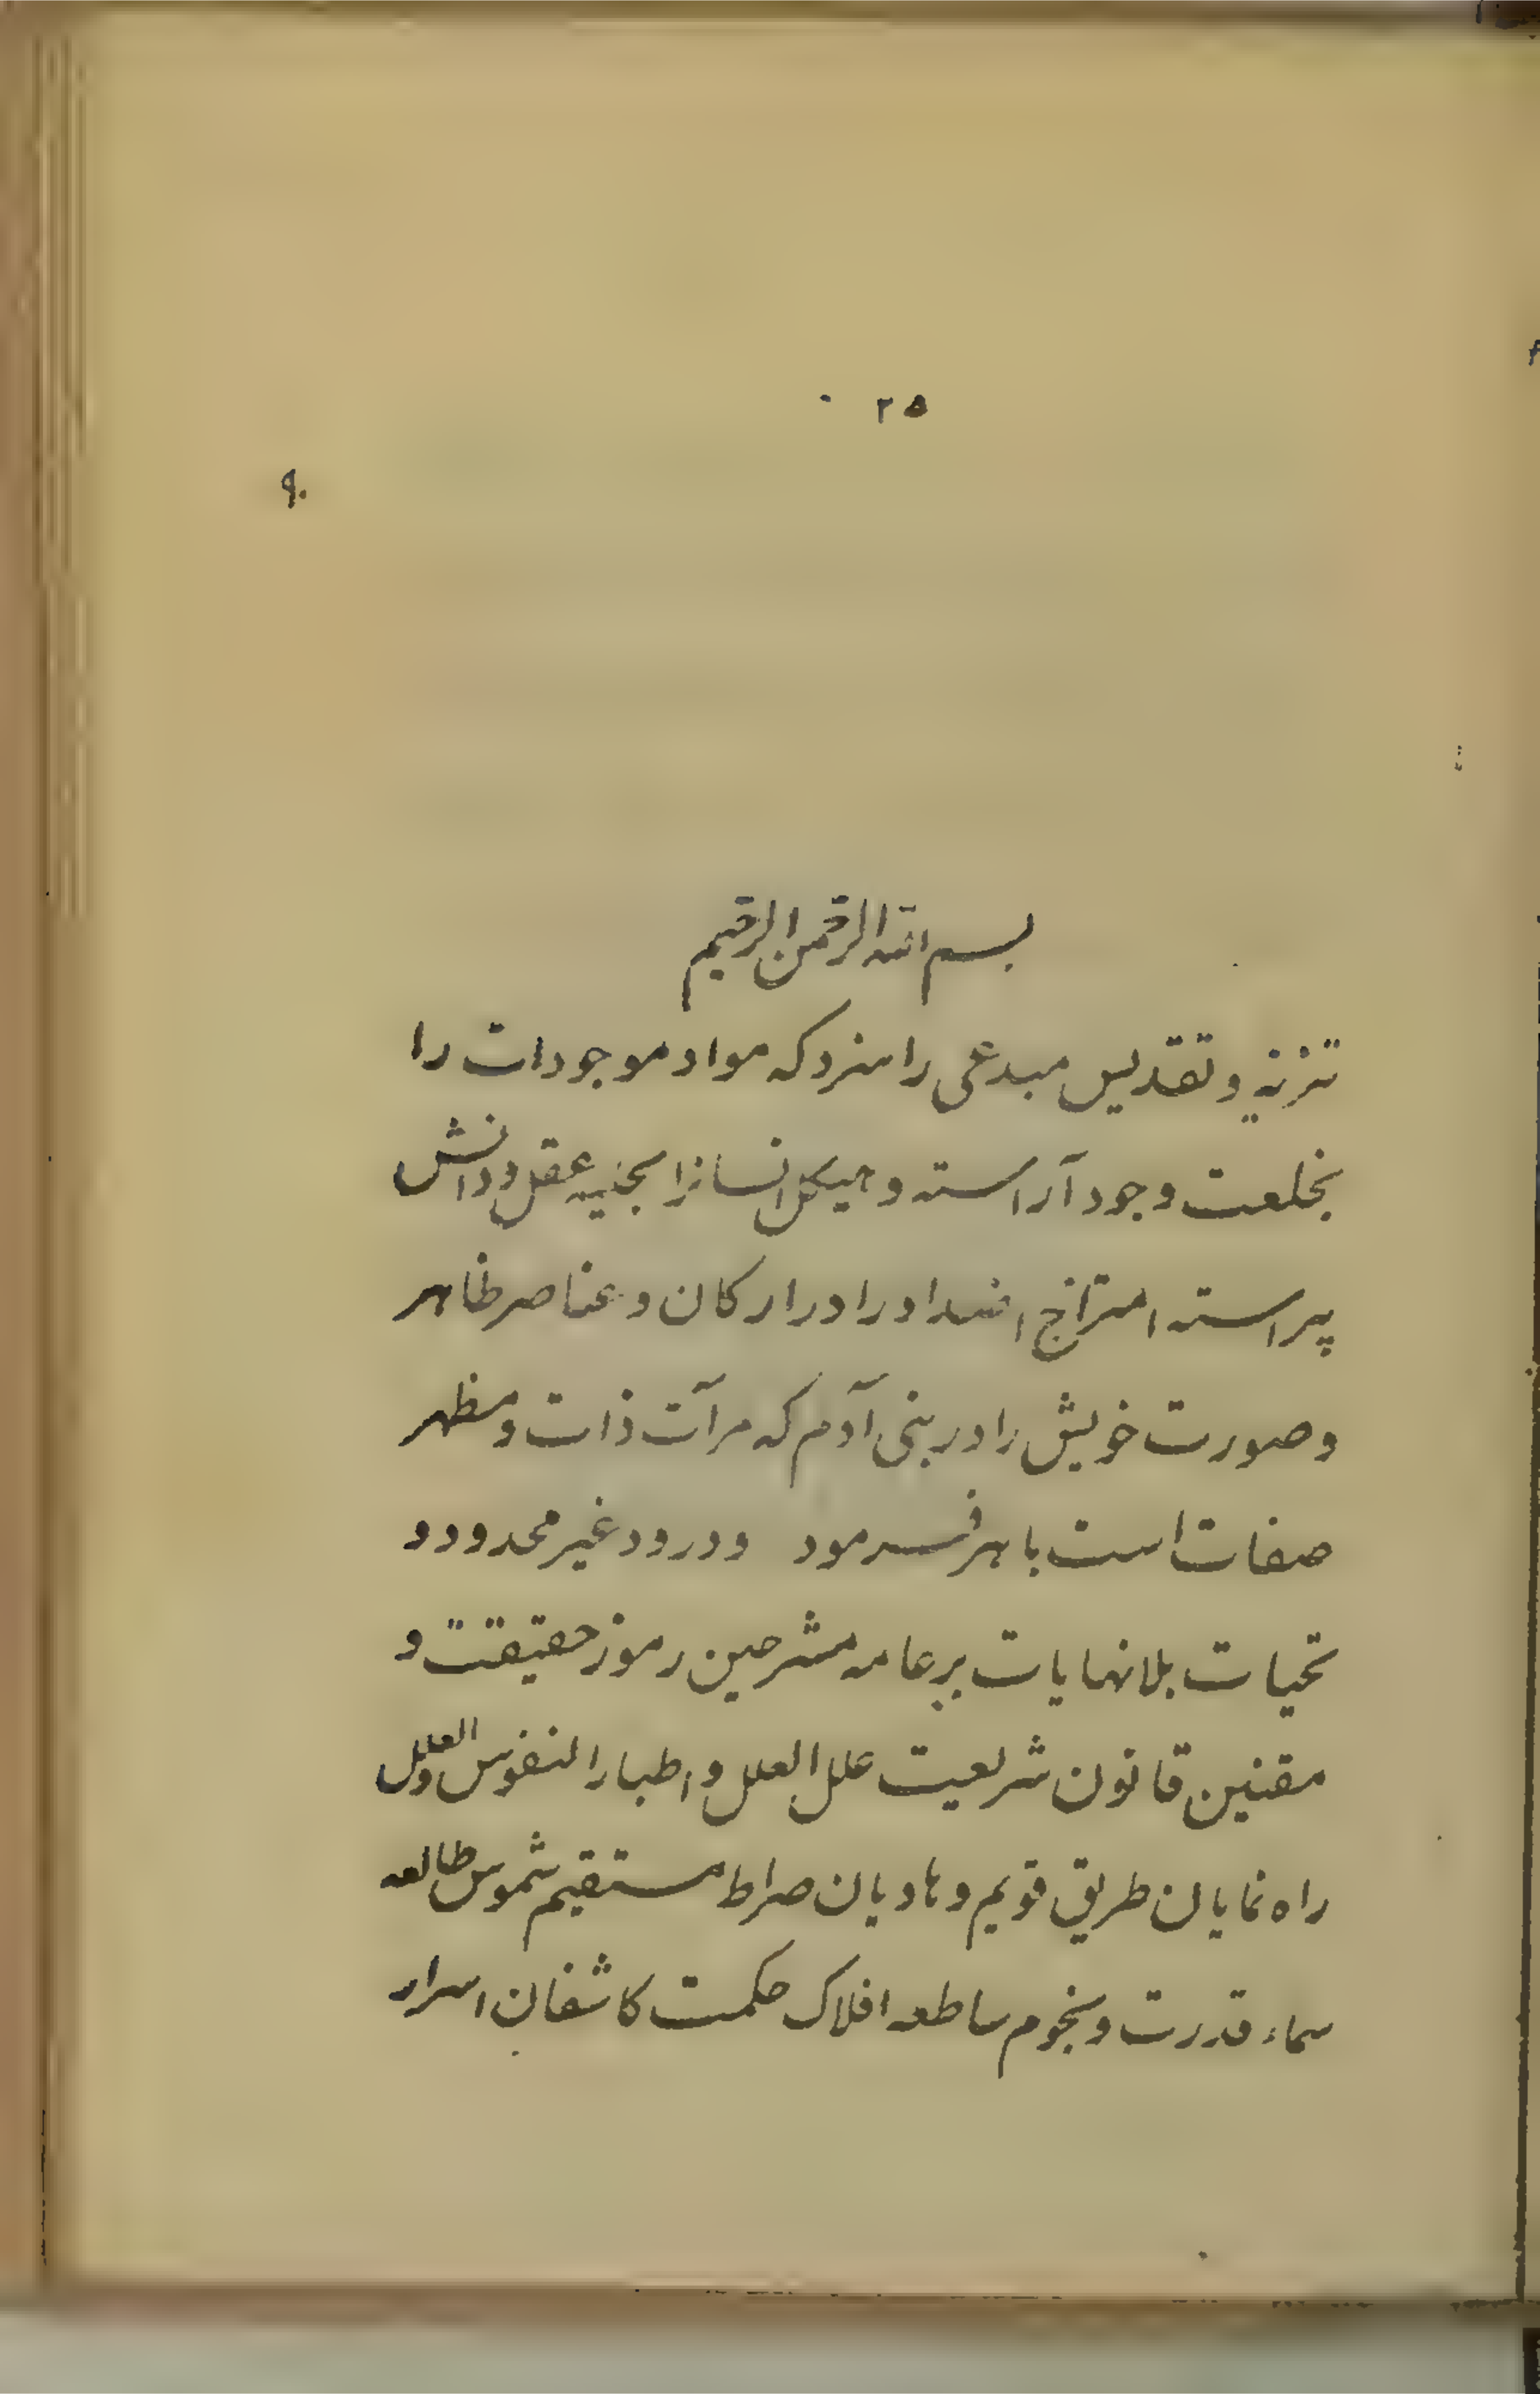 ۲۵
بسم الله الرحمن الرحیم
تنزیه و تقدیس مبدعی را سزد که مواد موجودات را
بخلعت وجود آراسته و هیکل انسانرا بحلیه عقل و دانش
پیراسته امتزاج اضداد را در ارکان و عناصر ظاهر
و صورت خویش را در بنی آدم که مرآت ذات و مظهر
صفات است باهر فرمود و درود غیر محدود و
تحیات بلا نهایات بر عامه مشرحین رموز حقیقت و
مقننین قانون شریعت علل العلل و اطباء النفوس و العلل
راه نمایان طریق قویم و هادیان صراط مستقیم شموس طالعه
سماء قدرت و نجوم ساطعه افلاک حکمت کاشفان اسرار